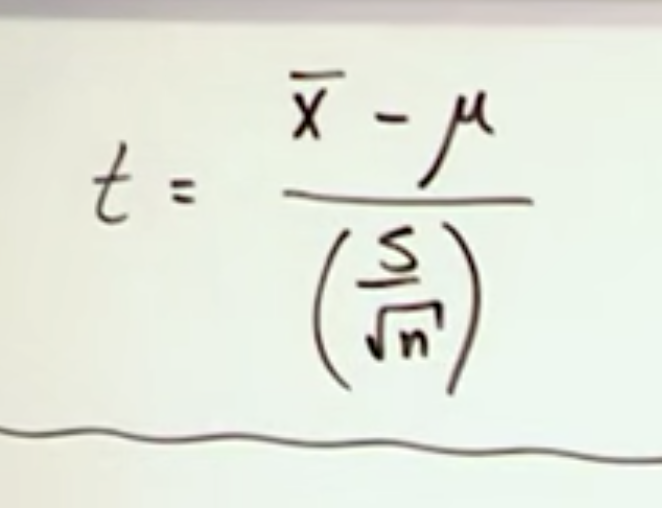 t = (x̄ - μ) / (s / √n)